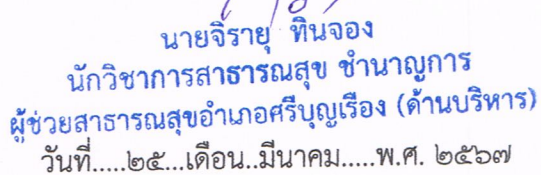 นายจิรายุ ทินจอง
นักวิชาการสาธารณสุข ชำนาญการ
ผู้ช่วยสาธารณสุขอำเภอศรีบุญเรือง (ด้านบริหาร)
วันที่.....๒๕...เดือน..มีนาคม.....พ.ศ. ๒๕๖๗